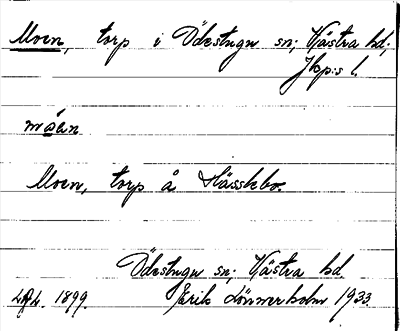 Moen, torp i Ödestugu sn; Västra hd;
Jkp:s l.
moan
Moen, torp å Hässlebo.
Ödestugu sn; Västra hd.
1899. Erik Lönnerholm 1933.